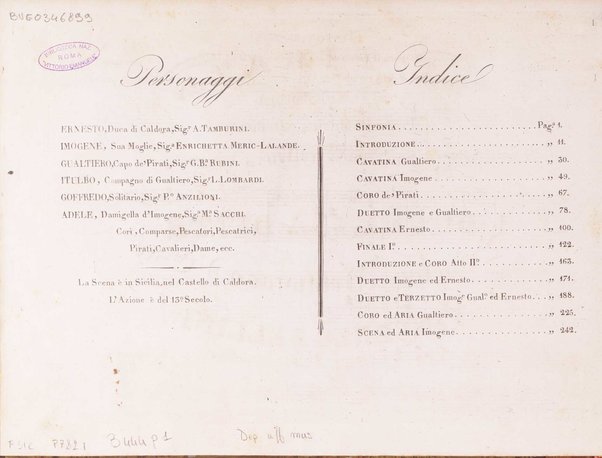 BVE0346899
BIBLIOTECA NAZ.
ROMA
VITTORIO EMANUELE
Personaggi
ERNESTO, Duca di Caldora, Sigr A. TAMBURINI.
IMOGENE, Sua Moglie, Sigа ENRICHETTA MERIC-LALANDE.
GUALTIERO, Capo de' Pirati, Sigr G. Ba RUBINI.
ITULBO, Compagno di Gualtiero, Sigr L. LOMBARDI.
GOFFREDO, Solitario, Sigr Po ANZILIOTTI.
ADELE, Damigella d'Imogene, Siga Ma SACCHI.
Cori, Comparse, Pescatori, Pescatrici,
Pirati, Cavalieri, Dame, ecc.
La Scena è in Sicilia, nel Castello di Caldora.
L'Azione è del 13o Secolo.
Indice
SINFONIA ........ Paga 1.
INTRODUZIONE ........ „ 11.
CAVATINA Gualtiero ........ „ 30.
CAVATINA Imogene ........ „ 49.
CORO de' Pirati ........ „ 67.
DUETTO Imogene e Gualtiero ........ „ 78.
CAVATINA Ernesto ........ „ 100.
FINALE Io. ........ „ 122.
INTRODUZIONE e CORO Atto IIo. ........ „ 163.
DUETTO Imogene ed Ernesto ........ „ 171.
DUETTO e TERZETTO Imoge Gualo ed Ernesto ........ „ 188.
CORO ed ARIA Gualtiero ........ „ 225.
SCENA ed ARIA Imogene ........ „ 242.
3444 p 1